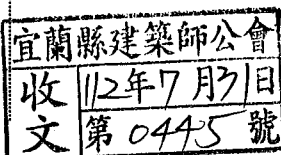 宜蘭縣建築師公會
收文
112年7月31日
第0445號